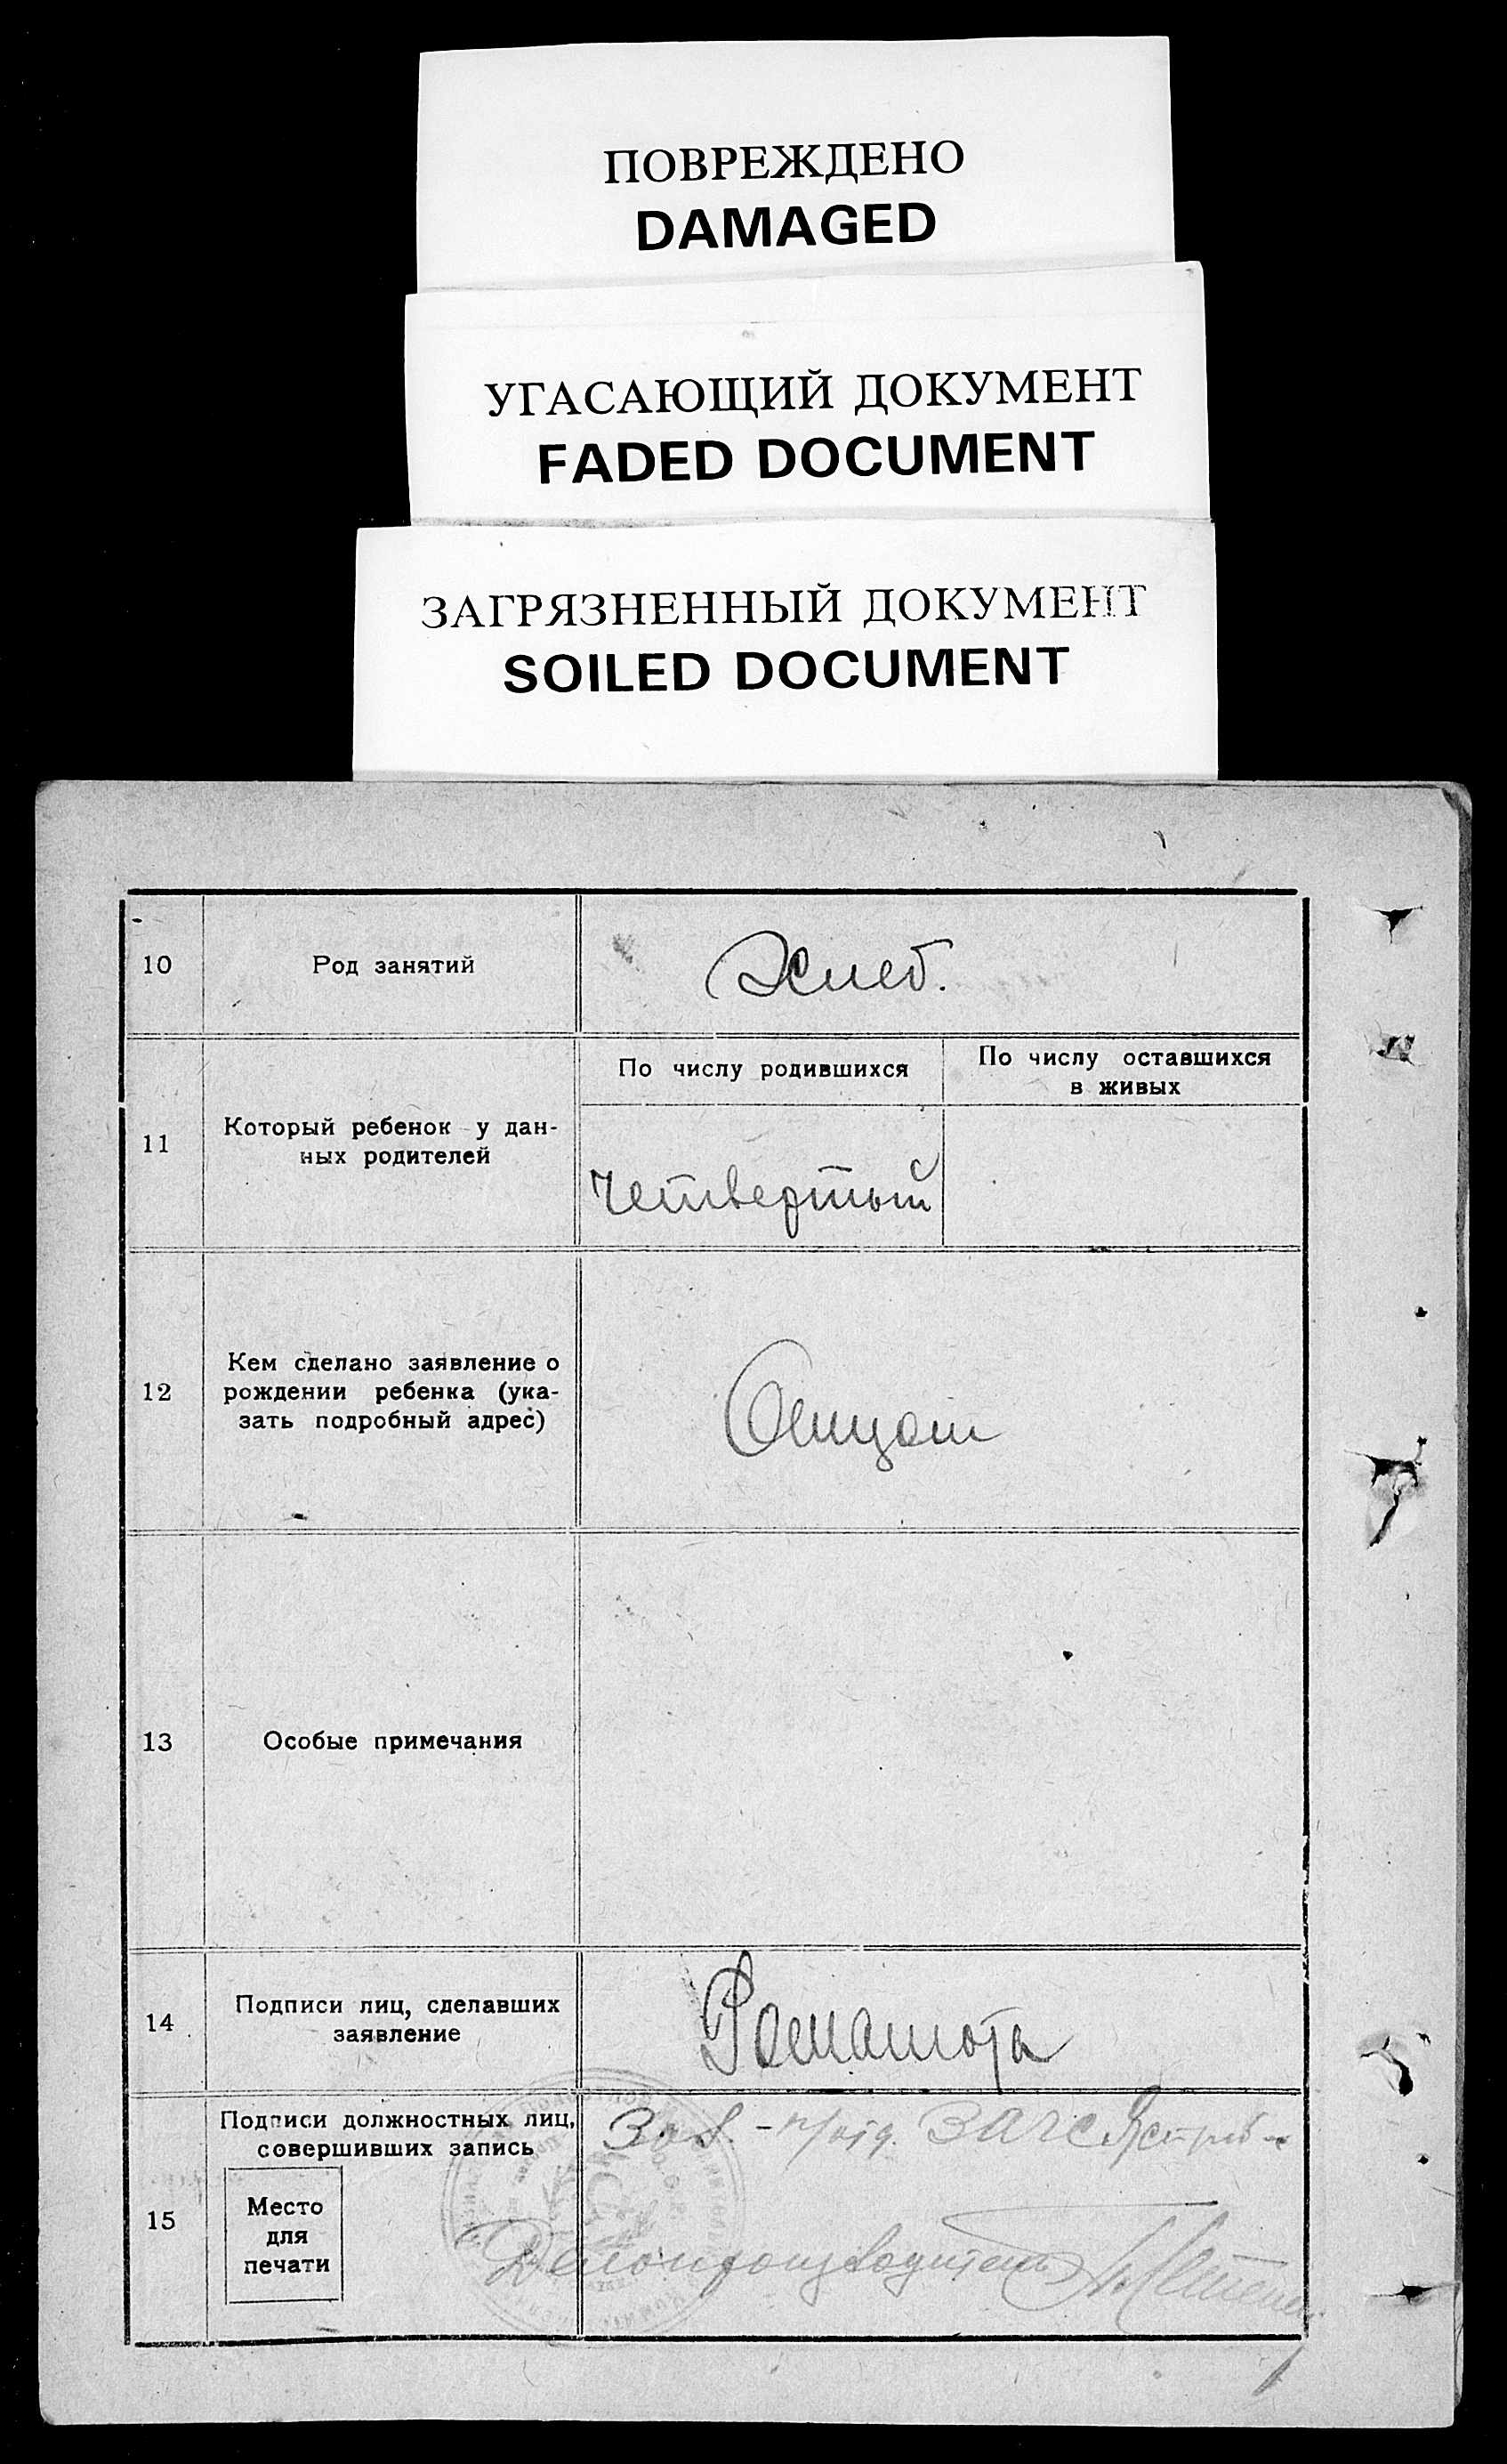 ПОВРЕЖДЕНО
DAMAGED
УГАСАЮЩИЙ ДОКУМЕНТ
FADED DOCUMENT
ЗАГРЯЗНЕННЫЙ ДОКУМЕНТ
SOILED DOCUMENT
10
Род занятий
Хлеб.
11
Который ребенок у дан-
ных родителей
По числу родившихся
По числу оставшихся
в живых
Четвертый
12
Кем сделано заявление о
рождении ребенка (ука-
зать подробный адрес)
Отцом
13
Особые примечания
14
Подписи лиц, сделавших
заявление
15
Подписи должностных лиц,
совершивших запись
Место
для
печати
Зав. п/отд. ЗАГС
Делопроизводитель